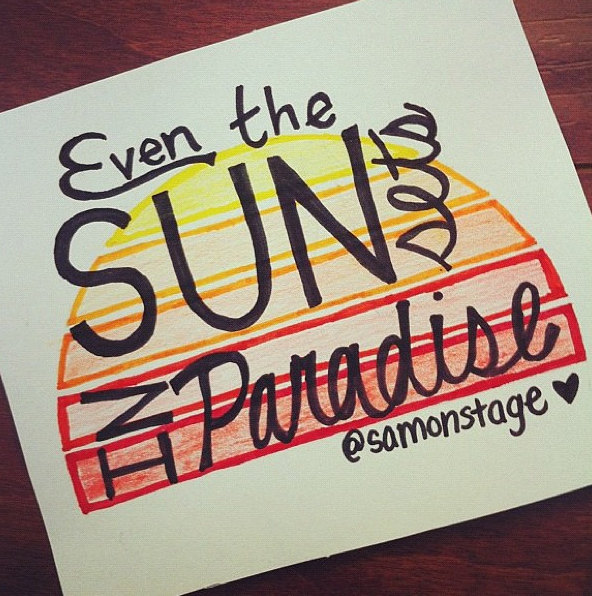 Even the
SUN sets
IN Paradise
@samonstage ♥